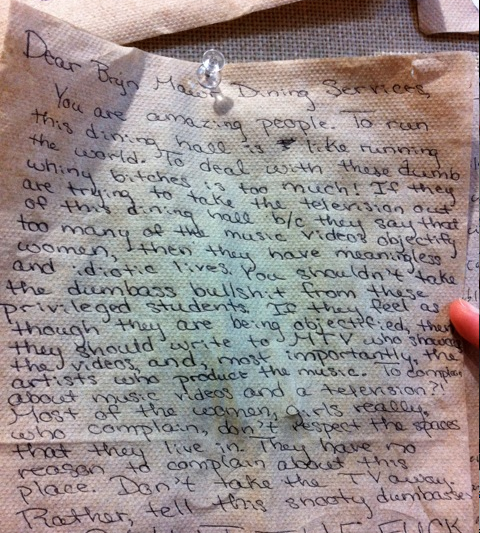 Dear Bryn Mawr Dining Services,
You are amazing people. To run
this dining hall is like running
the world. To deal with these dumb
whiny bitches is too much! If they
are trying to take the television out
of this dining hall b/c they say that
too many of the music videos objectify
women, then they have meaningless
and idiotic lives. You shouldn't take
the dumbass bullshit from these
privileged students. If they feel as
though they are being objectified, then
they should write to MTV who shows
the videos, and, most importantly, the
artists who product the music. To complain
about music videos and a television?!
Most of the women, girls really,
who complain, don't respect the spaces
that they live in. They have no
reason to complain about this
place. Don't take the TV away.
Rather, tell this snooty dumbasses
THE FUCK